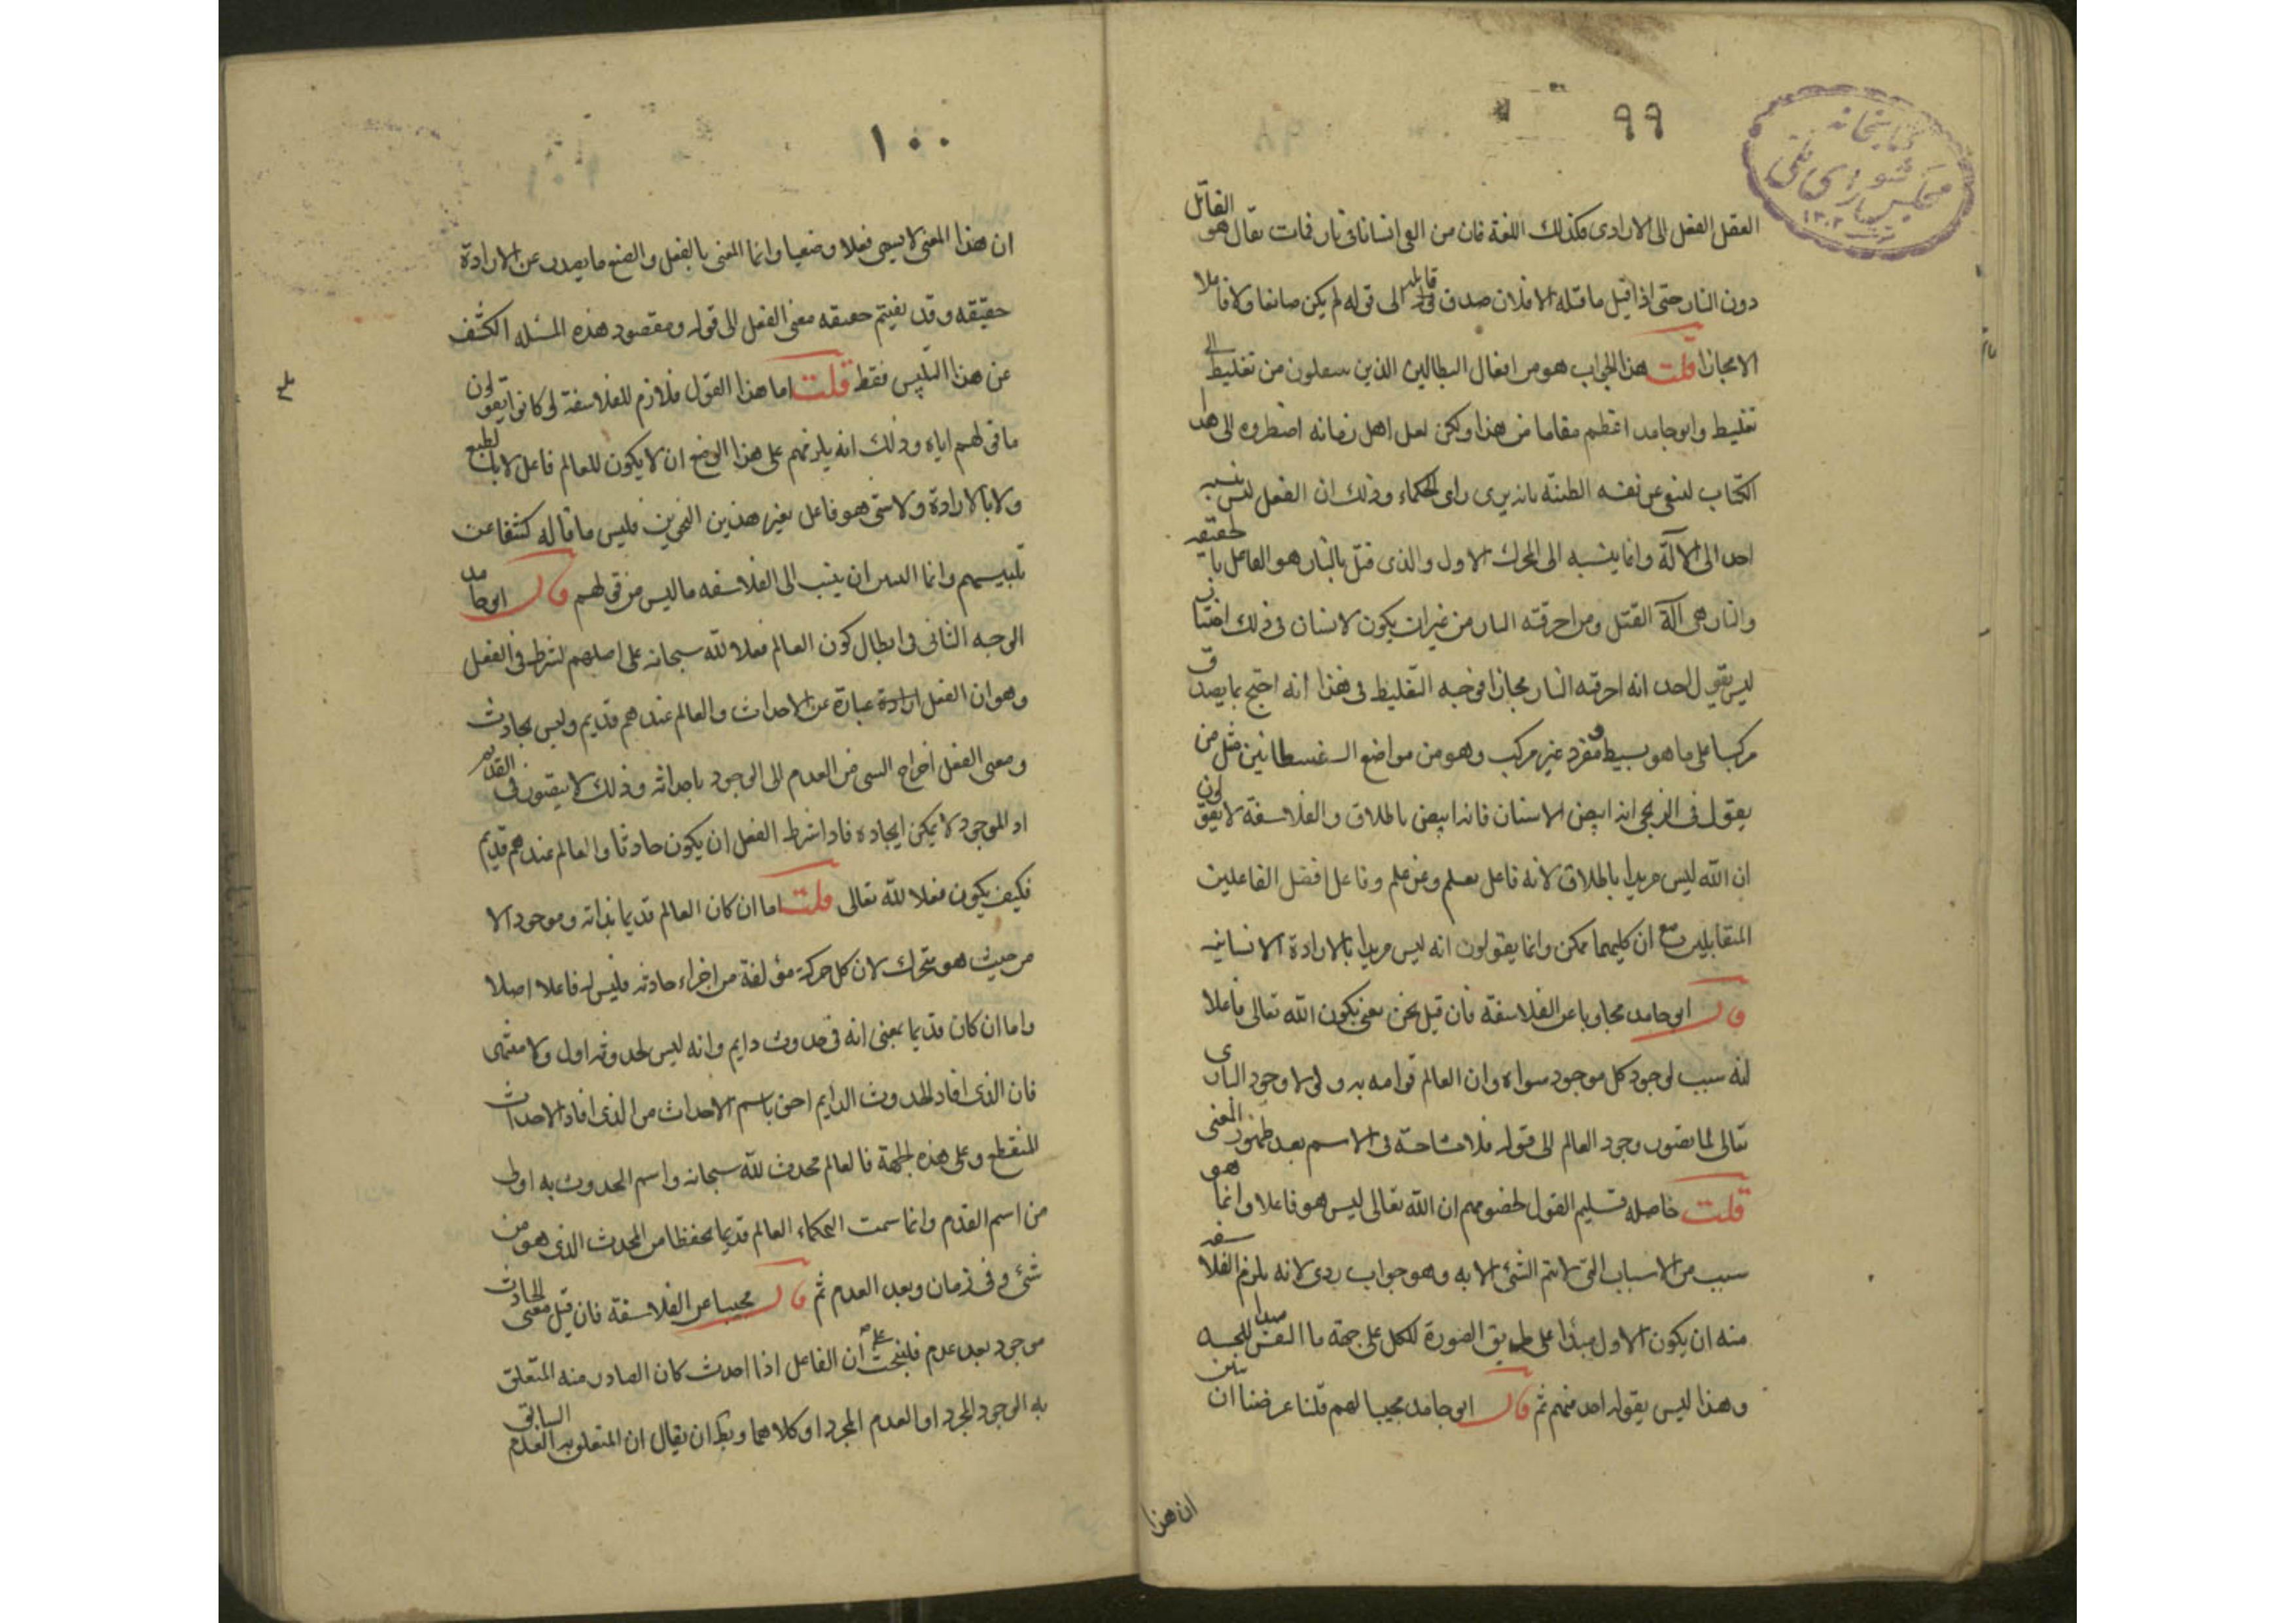 ٩٩
كتابخانه
مجلس شوراى ملى
١٣٠٢
العقل الفعل الى الارادى فكذلك اللغة فان من القى انسانا فى نار فمات يقال هو القاتل
دون النار حتى اذا قيل ما قتله الا فلان صدق قايله الى قوله لم يكن صانعا ولا فاعلا
الا مجازا قلت هذا الجواب هو من افعال البطالين الذين ينتقلون من تغليط الى
تغليط وابو حامد اعظم مقاما من هذا ولكن لعل اهل زمانه اضطروه الى هذا
الكتاب لينفى عن نفسه الظنة بانه يرى راى الحكماء وذلك ان الفعل ليس ينسبه
احد الى الآلة وانما ينسبه الى المحرك الاول والذى قتل بالنار هو الفاعل بالحقيقه
والنار هى آلة القتل ومن احرقته النار من غير ان يكون لانسان فى ذلك اختيار
ليس يقول احد انه احرقته النار مجازا فوجه التغليط فى هذا انه احتج بما يصدق
مركبا على ما هو بسيط مفرد غير مركب وهو من مواضع السفسطانين مثل من
يقول فى الزنجى انه ابيض الاسنان فانه ابيض باطلاق والفلاسفة لا يقولون
ان الله ليس مريدا باطلاق لانه فاعل بعلم وعن علم وفاعل افضل الفاعلين
المتقابلين مع ان كليهما ممكن وانما يقولون انه ليس مريدا بالارادة الانسانيه
قال ابو حامد مجاوبا عن الفلاسفة فان قيل نحن نعنى بكون الله تعالى فاعلا
انه سبب لوجود كل موجود سواه وان العالم قوامه به ولولا وجود البارى
تعالى لما يصور وجود العالم الى قوله فلا مشاحة فى الاسم بعد ظهور المعنى
قلت حاصله تسليم القول لخصومهم ان الله تعالى ليس هو فاعلا وانما هو
سبب من الاسباب التى لا يتم الشئ الا به وهو جواب ردى لانه يلزم الفلاسفه
منه ان يكون الاول مبدا على طريق الصورة للكل على جهة ما النفس مبدا للجسد
وهذا ليس يقوله احد منهم ثم قال ابو حامد مجيبا لهم قلنا غرضنا ان نبين
ان هذا
١٠٠
ان هذا المعنى لا يسمى فعلا وصنعا وانما المعنى بالفعل والصنع ما يصدر عن الارادة
حقيقه وقد نفيتم حقيقه معنى الفعل الى قوله ومقصود هذه المسئله الكشف
عن هذا التلبيس فقط قلت اما هذا القول فلازم للفلاسفة لو كانوا يقولون
ما قولهم اياه وذلك انه يلزمهم على هذا الوضع ان لا يكون للعالم فاعل لا بالطبع
ولا بالارادة ولا شى هو فاعل بغير هذين النحوين فليس ما قاله كشفا عن
تلبيسهم وانما التلبس ان ينسب الى الفلاسفه ما ليس من قولهم قال ابو حامد
الوجه الثانى فى ابطال كون العالم فعلا لله سبحانه على اصلهم لشرط فى الفعل
وهو ان الفعل عبارة عن الاحداث والعالم عندهم قديم وليس بحادث
ومعنى الفعل اخراج الشى من العدم الى الوجود باحداثه وذلك لا يتصور فى القديم
اذ الموجود لا يمكن ايجاده فاذا شرط الفعل ان يكون حادثا والعالم عندهم قديم
فكيف يكون فعلا لله تعالى قلت اما ان كان العالم قديما بذاته وموجودا لا
من حيث هو متحرك لان كل حركة مؤلفة من اجزاء حادثه فليس له فاعلا اصلا
واما ان كان قديما بمعنى انه فى حدوث دايم وانه ليس لحدوثه اول ولا منتهى
فان الذى افاد الحدوث الدايم احق باسم الاحداث من الذى افاد الاحداث
المنقطع وعلى هذه الجهة فالعالم محدث لله سبحانه واسم الحدوث به اولى
من اسم القدم وانما سمت الحكماء العالم قديما تحفظا من المحدث الذى هو من
شئ وفى زمان وبعد العدم ثم قال مجيبا عن الفلاسفة فان قيل معنى الحادث
موجود بعد عدم فلنبحث على ان الفاعل اذا احدث كان الصادر منه المتعلق
به الوجود المجرد او العدم المجرد او كلاهما وبطل ان يقال ان المتعلق به العدم السابق